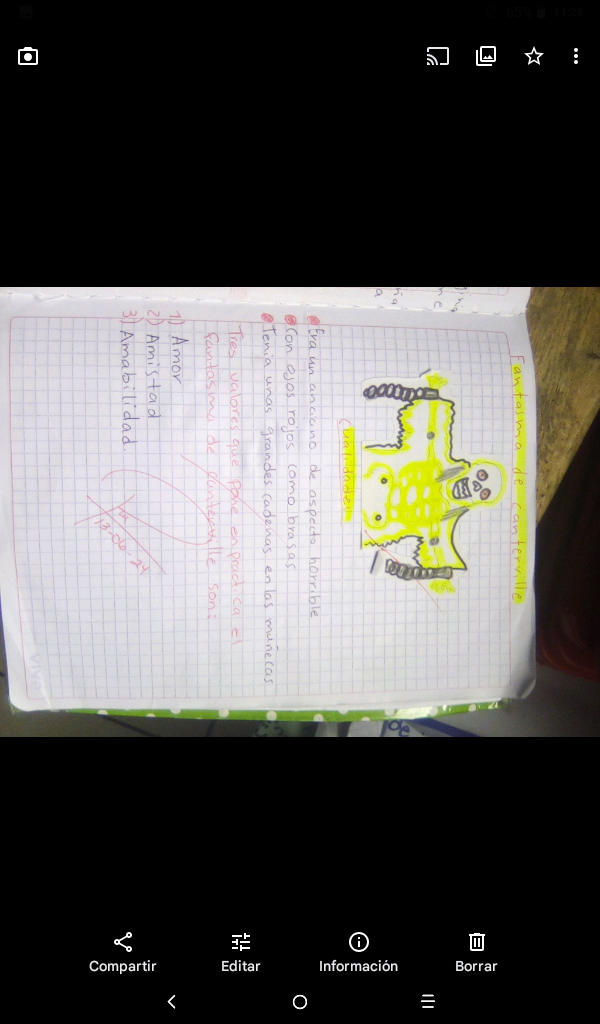 11:28
Fantasma de canterville
Cualidades
Era un anciano de aspecto horrible
Con ojos rojos como brasas
Tenia unas grandes cadenas en las muñecas
Tres valores que pone en practica el
fantasma de canterville son:
1) Amor
2) Amistad
3) Amabilidad
13-06-24
Compartir
Editar
Información
Borrar